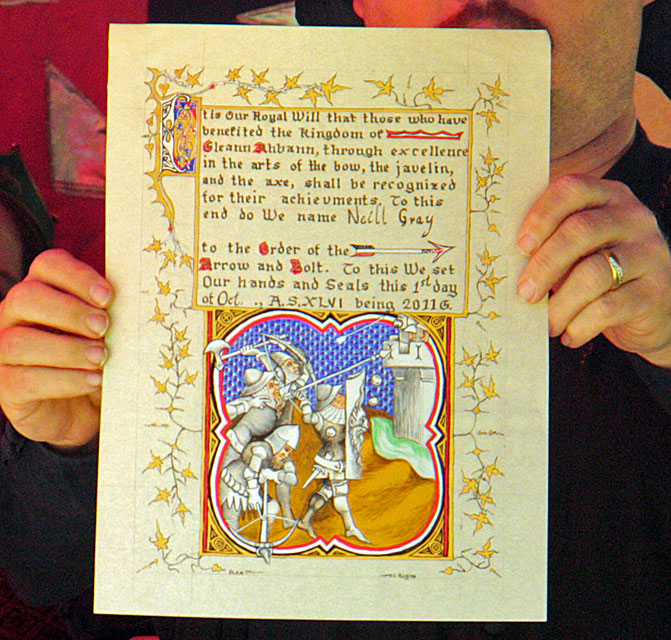 It is Our Royal Will that those who have
benefited the Kingdom of
Gleann Abhann, through excellence
in the arts of the bow, the javelin,
and the axe, shall be recognized
for their achievments. To this
end do We name Neill Gray
to the Order of the
Arrow and Bolt. To this We set
Our hands and Seals this 1st day
of Oct., A.S.XLVI being 2011G.